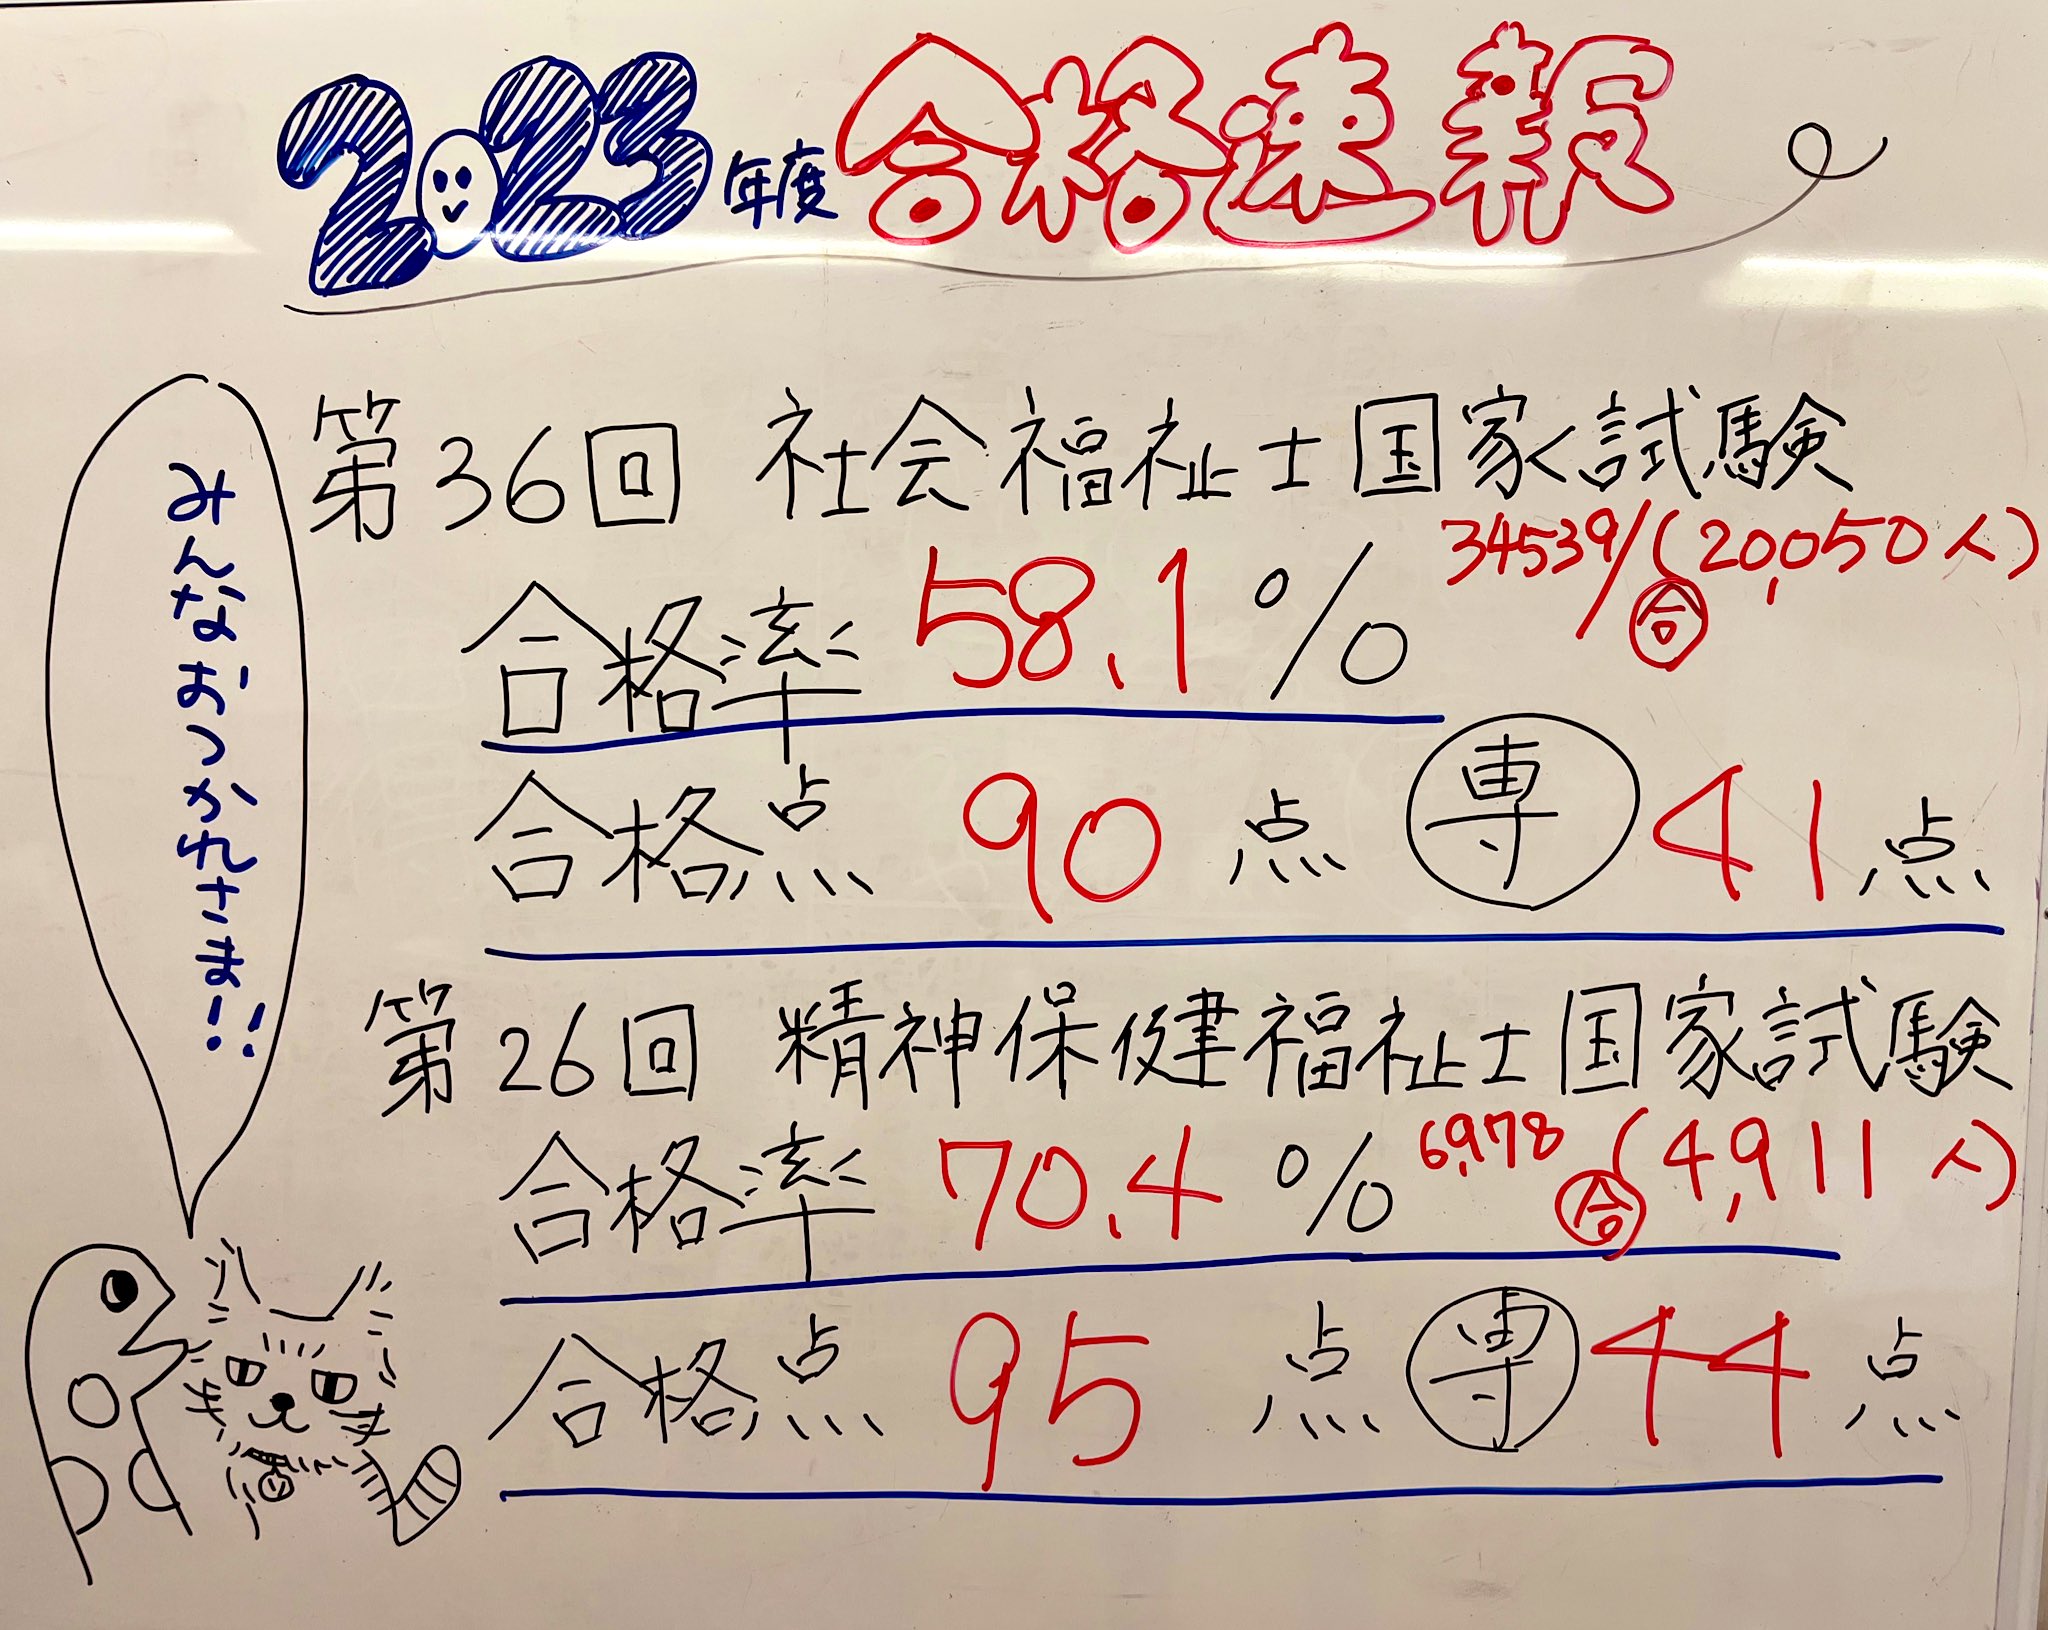 2023年度 合格速報
第36回 社会福祉士国家試験
34539/(20,050人)
合
合格率 58.1%
合格点 90点 専 41点
第26回 精神保健福祉士国家試験
合格率 70.4% 6,978 合(4,911人)
合格点 95点 専 44点
みんなおつかれさま!!